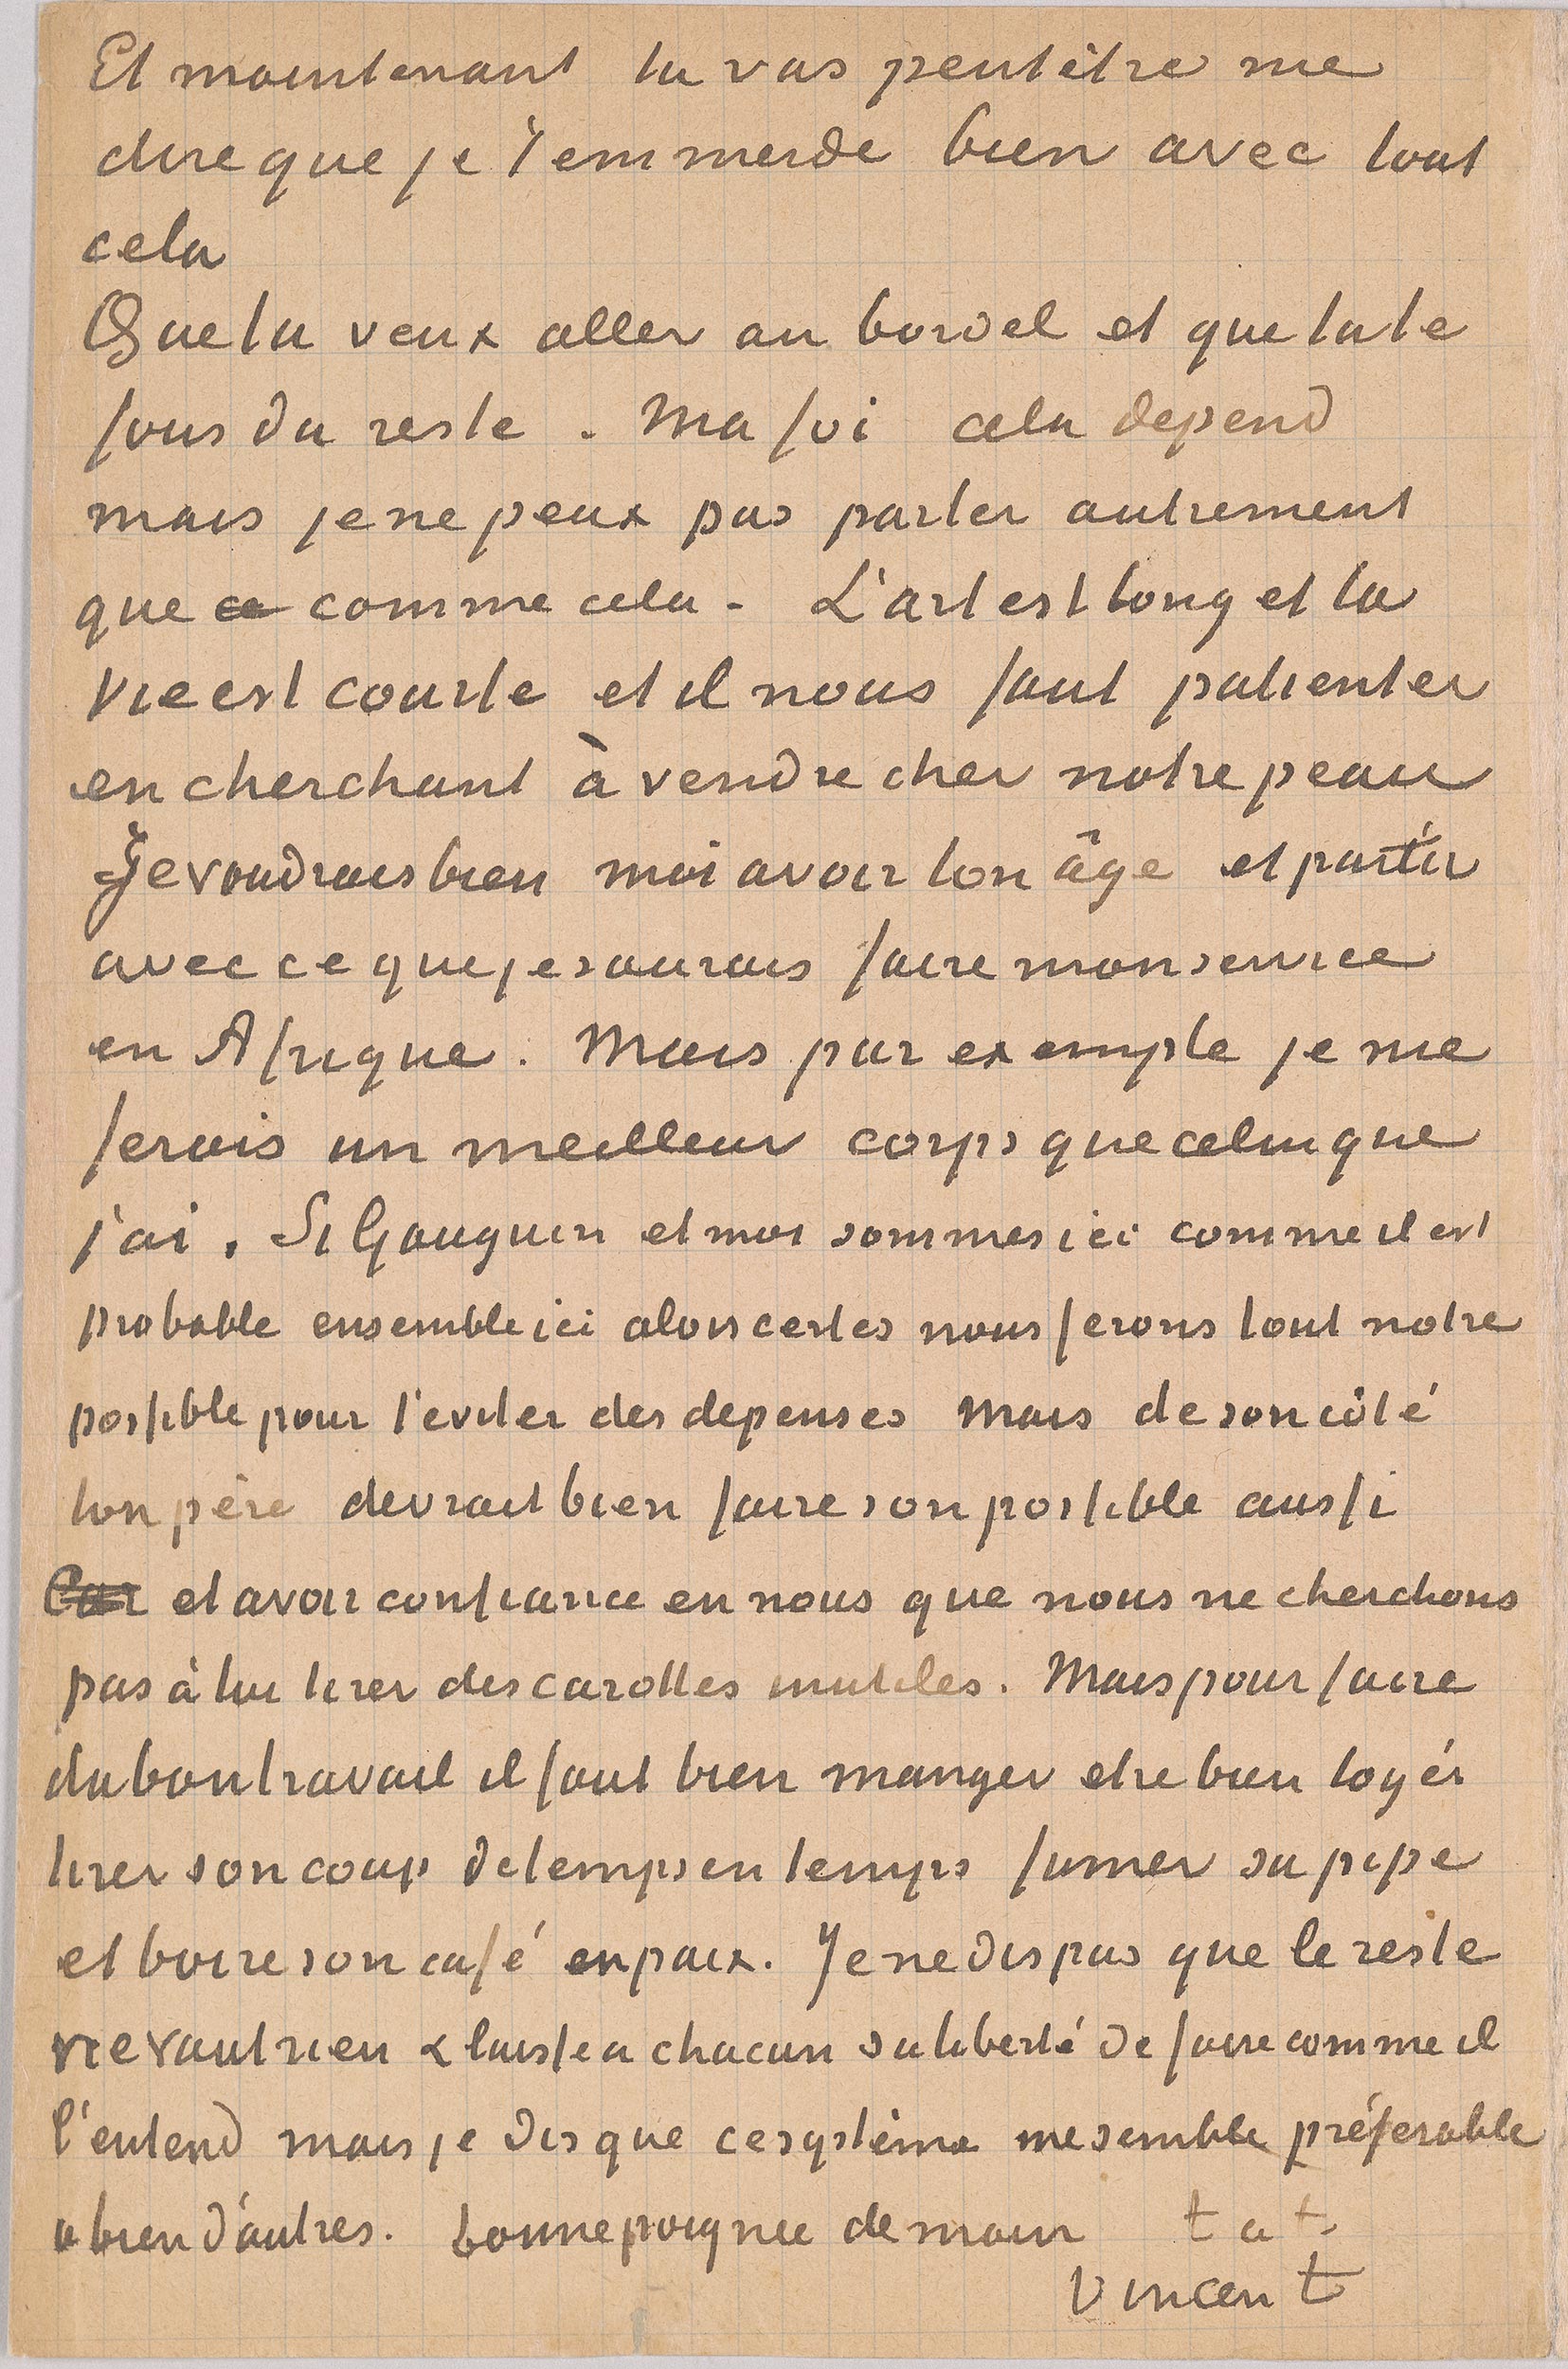 Et maintenant tu vas peutêtre me
dire que je t'emmerde bien avec tout
cela
Que tu veux aller au bordel et que tu te
fous du reste. Ma foi cela depend
mais je ne peux pas parler autrement
que ce comme cela – L'art est long et la
vie est courte et il nous faut patienter
en cherchant à vendre cher notre peau
Je voudrais bien moi avoir ton âge et partir
avec ce que je saurais faire mon service
en Afrique. Mais par exemple je me
ferais un meilleur corps que celui que
j'ai. Si Gauguin et moi sommes ici comme il est
probable ensemble ici alors certes nous ferons tout notre
possible pour t'eviter des depenses Mais de son côté
ton père devrait bien faire son possible aussi
Car et avoir confiance en nous que nous ne cherchons
pas à lui tirer des carottes inutiles. Mais pour faire
du bon travail il faut bien manger etre bien logér
tirer son coup de temps en temps fumer sa pipe
et boire son café en paix. Je ne dis pas que le reste
ne vaut rien & laisse a chacun sa liberté de faire comme il
l'entend mais je dis que ce système me semble préferable
a bien d'autres. bonne poignee de main t à t.
Vincent